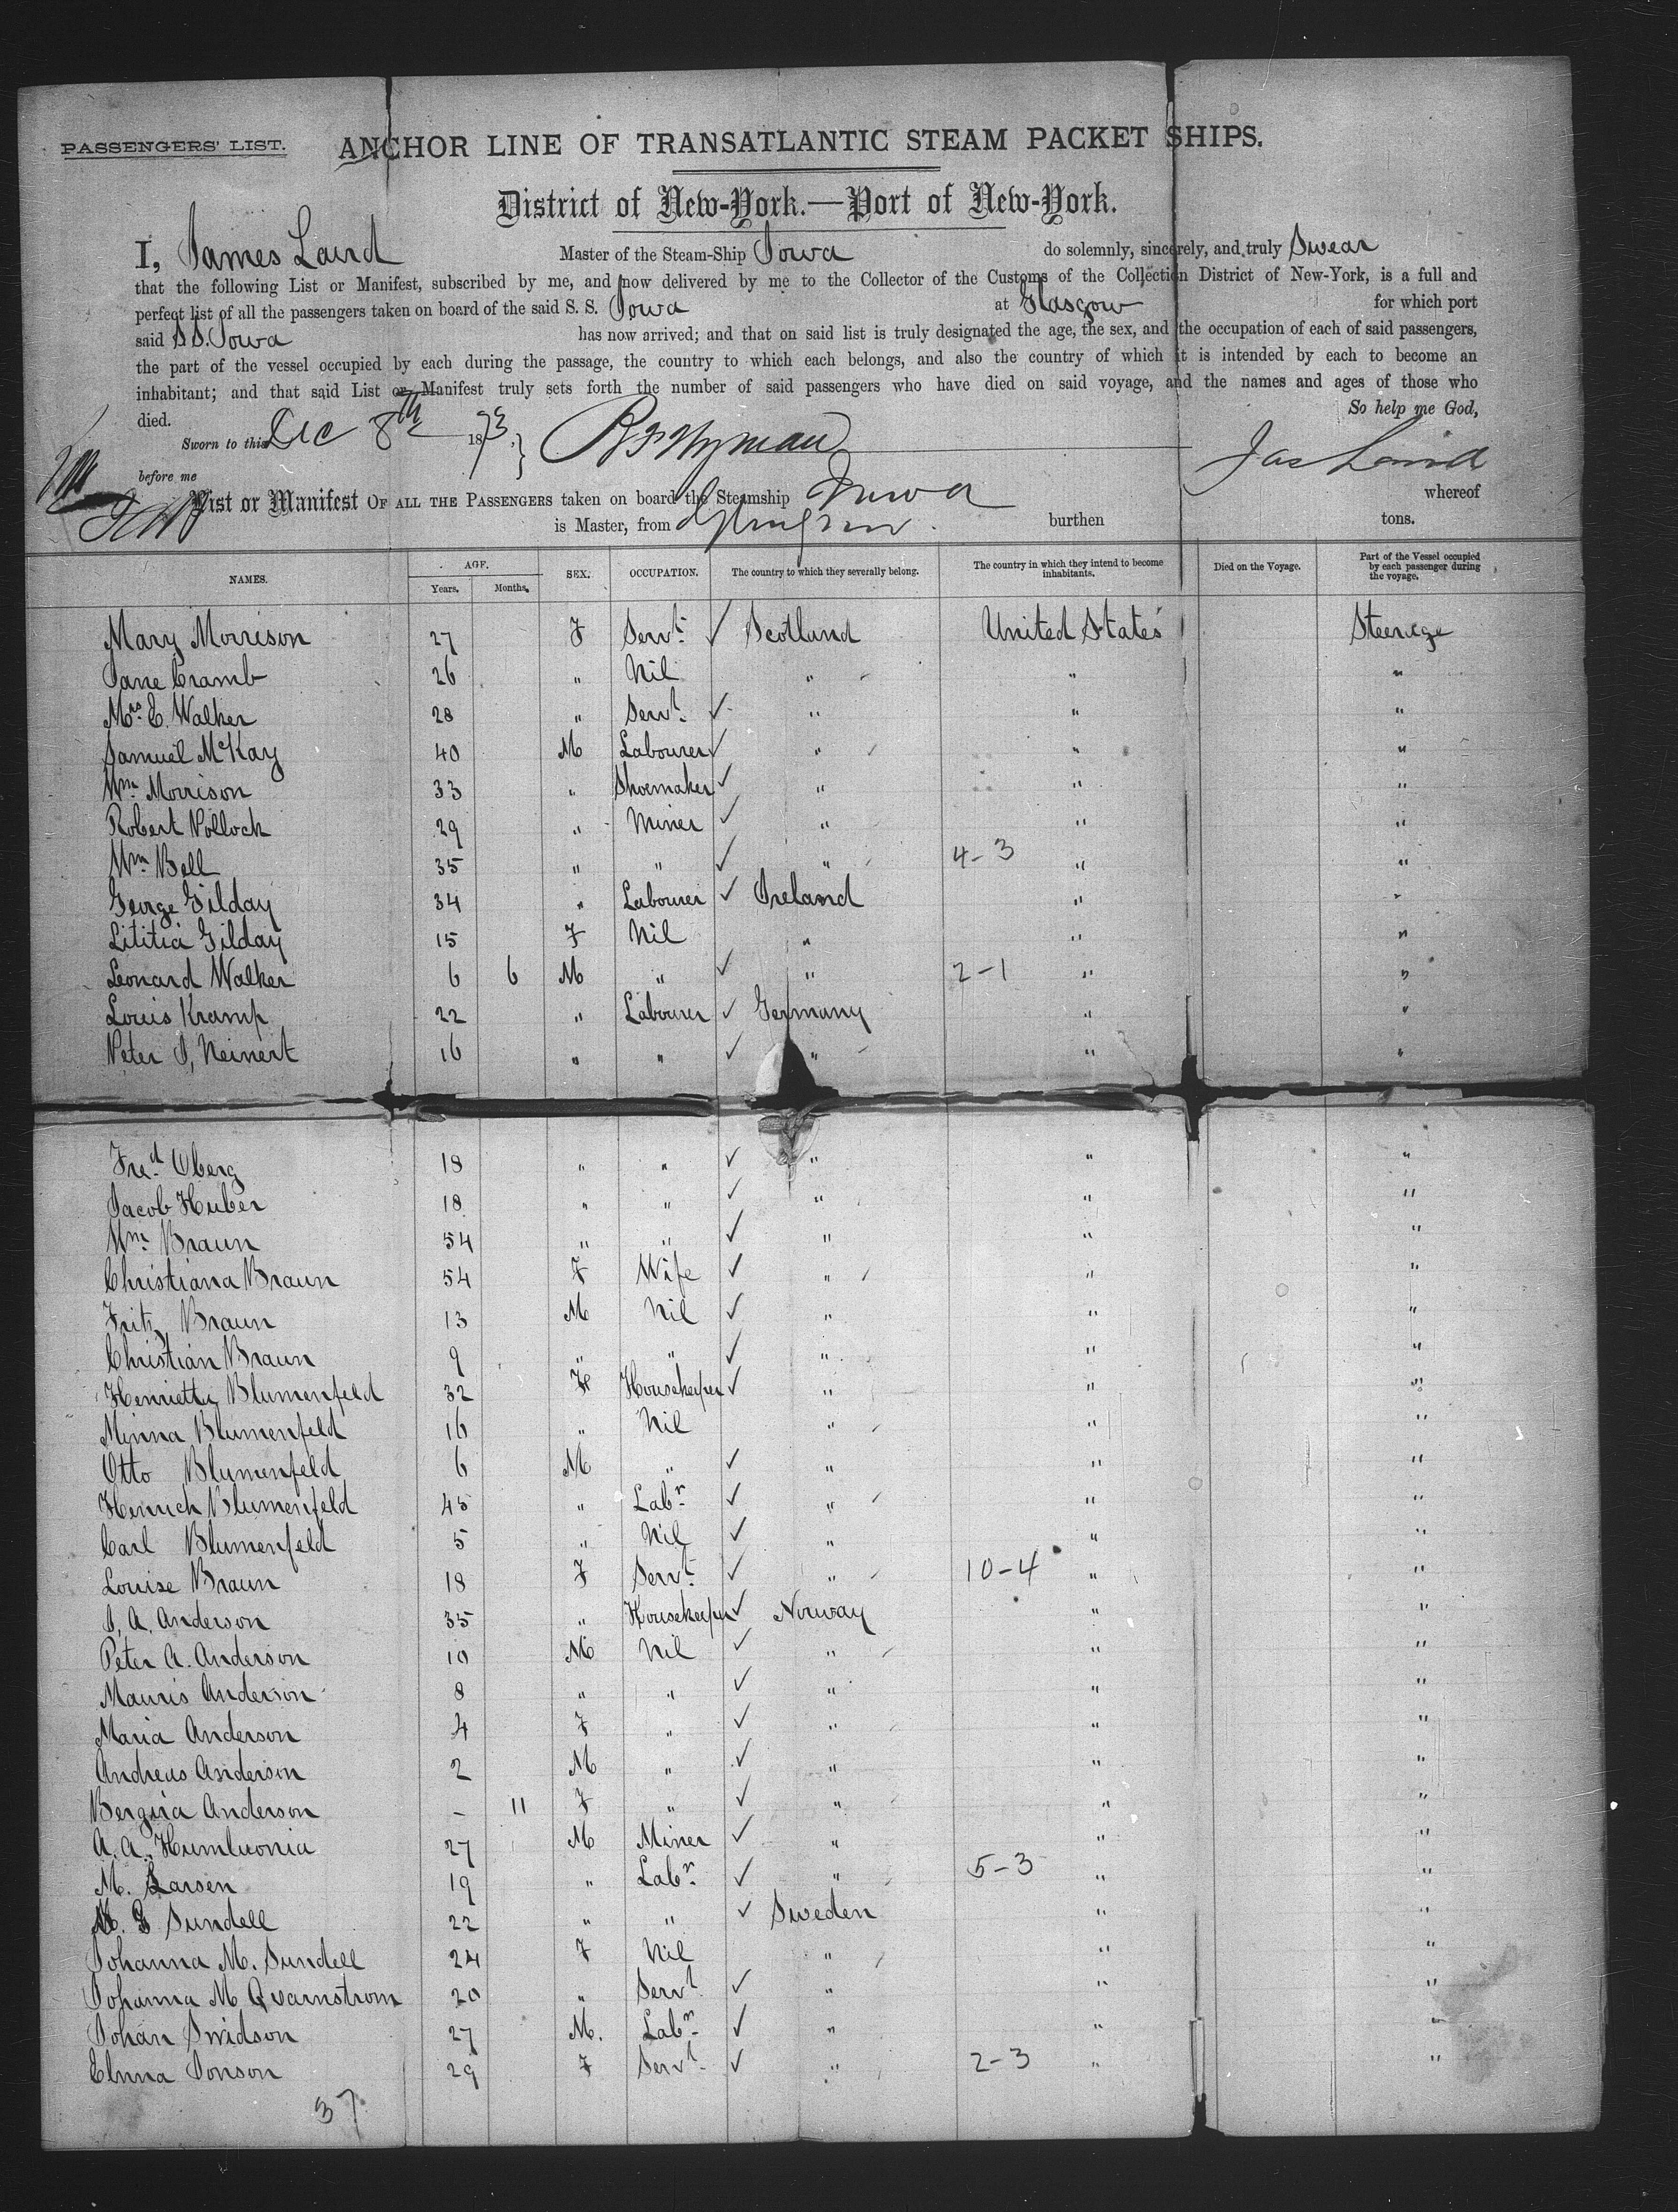 PASSENGERS' LIST.
ANCHOR LINE OF TRANSATLANTIC STEAM PACKET SHIPS.
District of New-York.—Port of New-York.
I, James Laird Master of the Steam-Ship Iowa do solemnly, sincerely, and truly Swear
that the following List or Manifest, subscribed by me, and now delivered by me to the Collector of the Customs of the Collection District of New-York, is a full and
perfect list of all the passengers taken on board of the said S. S. Iowa at Glasgow for which port
said S.S. Iowa has now arrived; and that on said list is truly designated the age, the sex, and the occupation of each of said passengers,
the part of the vessel occupied by each during the passage, the country to which each belongs, and also the country of which it is intended by each to become an
inhabitant; and that said List or Manifest truly sets forth the number of said passengers who have died on said voyage, and the names and ages of those who
died. So help me God,
Sworn to this Dec 8th 1873, Jas Laird
before me
List or Manifest OF ALL THE PASSENGERS taken on board the Steamship Iowa whereof
is Master, from Glasgow. burthen tons.
NAMES. AGE. Years. Months. SEX. OCCUPATION. The country to which they severally belong. The country in which they intend to become inhabitants. Died on the Voyage. Part of the Vessel occupied by each passenger during the voyage.
Mary Morrison 27 F Servt ✓ Scotland United States Steerage
Jane Cramb 26 " Nil " " "
Mrs. E. Walker 28 " Servt. ✓ " " "
Samuel McKay 40 M Labourer ✓ " " "
Wm Morrison 33 " Shoemaker ✓ " " "
Robert Pollock 29 " Miner ✓ " " "
Wm Bell 35 " " ✓ " 4-3 " "
George Gilday 34 " Labourer ✓ Ireland " "
Lititia Gilday 15 F Nil " " "
Leonard Walker 6 6 M " ✓ " 2-1 " "
Louis Kramp 22 " Labourer ✓ Germany " "
Peter J, Neinert 16 " " ✓ " " "
Fred Oberg 18 " " ✓ " " "
Jacob Huber 18 " " ✓ " " "
Wm Braun 54 " " ✓ " " "
Christiana Braun 54 F Wife ✓ " " "
Fritz Braun 13 M Nil ✓ " " "
Christian Braun 9 " " ✓ " " "
Henrietta Blumenfeld 32 F Housekeeper ✓ " " "
Minna Blumenfeld 16 " Nil " " "
Otto Blumenfeld 6 M " ✓ " " "
Heinrich Blumenfeld 45 " Labr ✓ " " "
Carl Blumenfeld 5 " Nil ✓ " " "
Louise Braun 18 F Servt ✓ " 10-4 " "
J. A. Anderson 35 " Housekeeper ✓ Norway " "
Peter A. Anderson 10 M Nil ✓ " " "
Mauris Anderson 8 " " ✓ " " "
Maria Anderson 4 F " ✓ " " "
Andreas Anderson 2 M " ✓ " " "
Bergita Anderson - 11 F " ✓ " " "
A. A. 27 M Miner ✓ " " "
M. Larsen 19 " Labr ✓ " 5-3 " "
Sundell 22 " " ✓ Sweden " "
Johanna M. Sundell 24 F Nil " " "
Johanna M Qvarnstrom 20 " Servt. ✓ " " "
Johan Swidson 27 M. Labr ✓ " " "
Elnna Jonson 29 F Servt ✓ " 2-3 " "
37